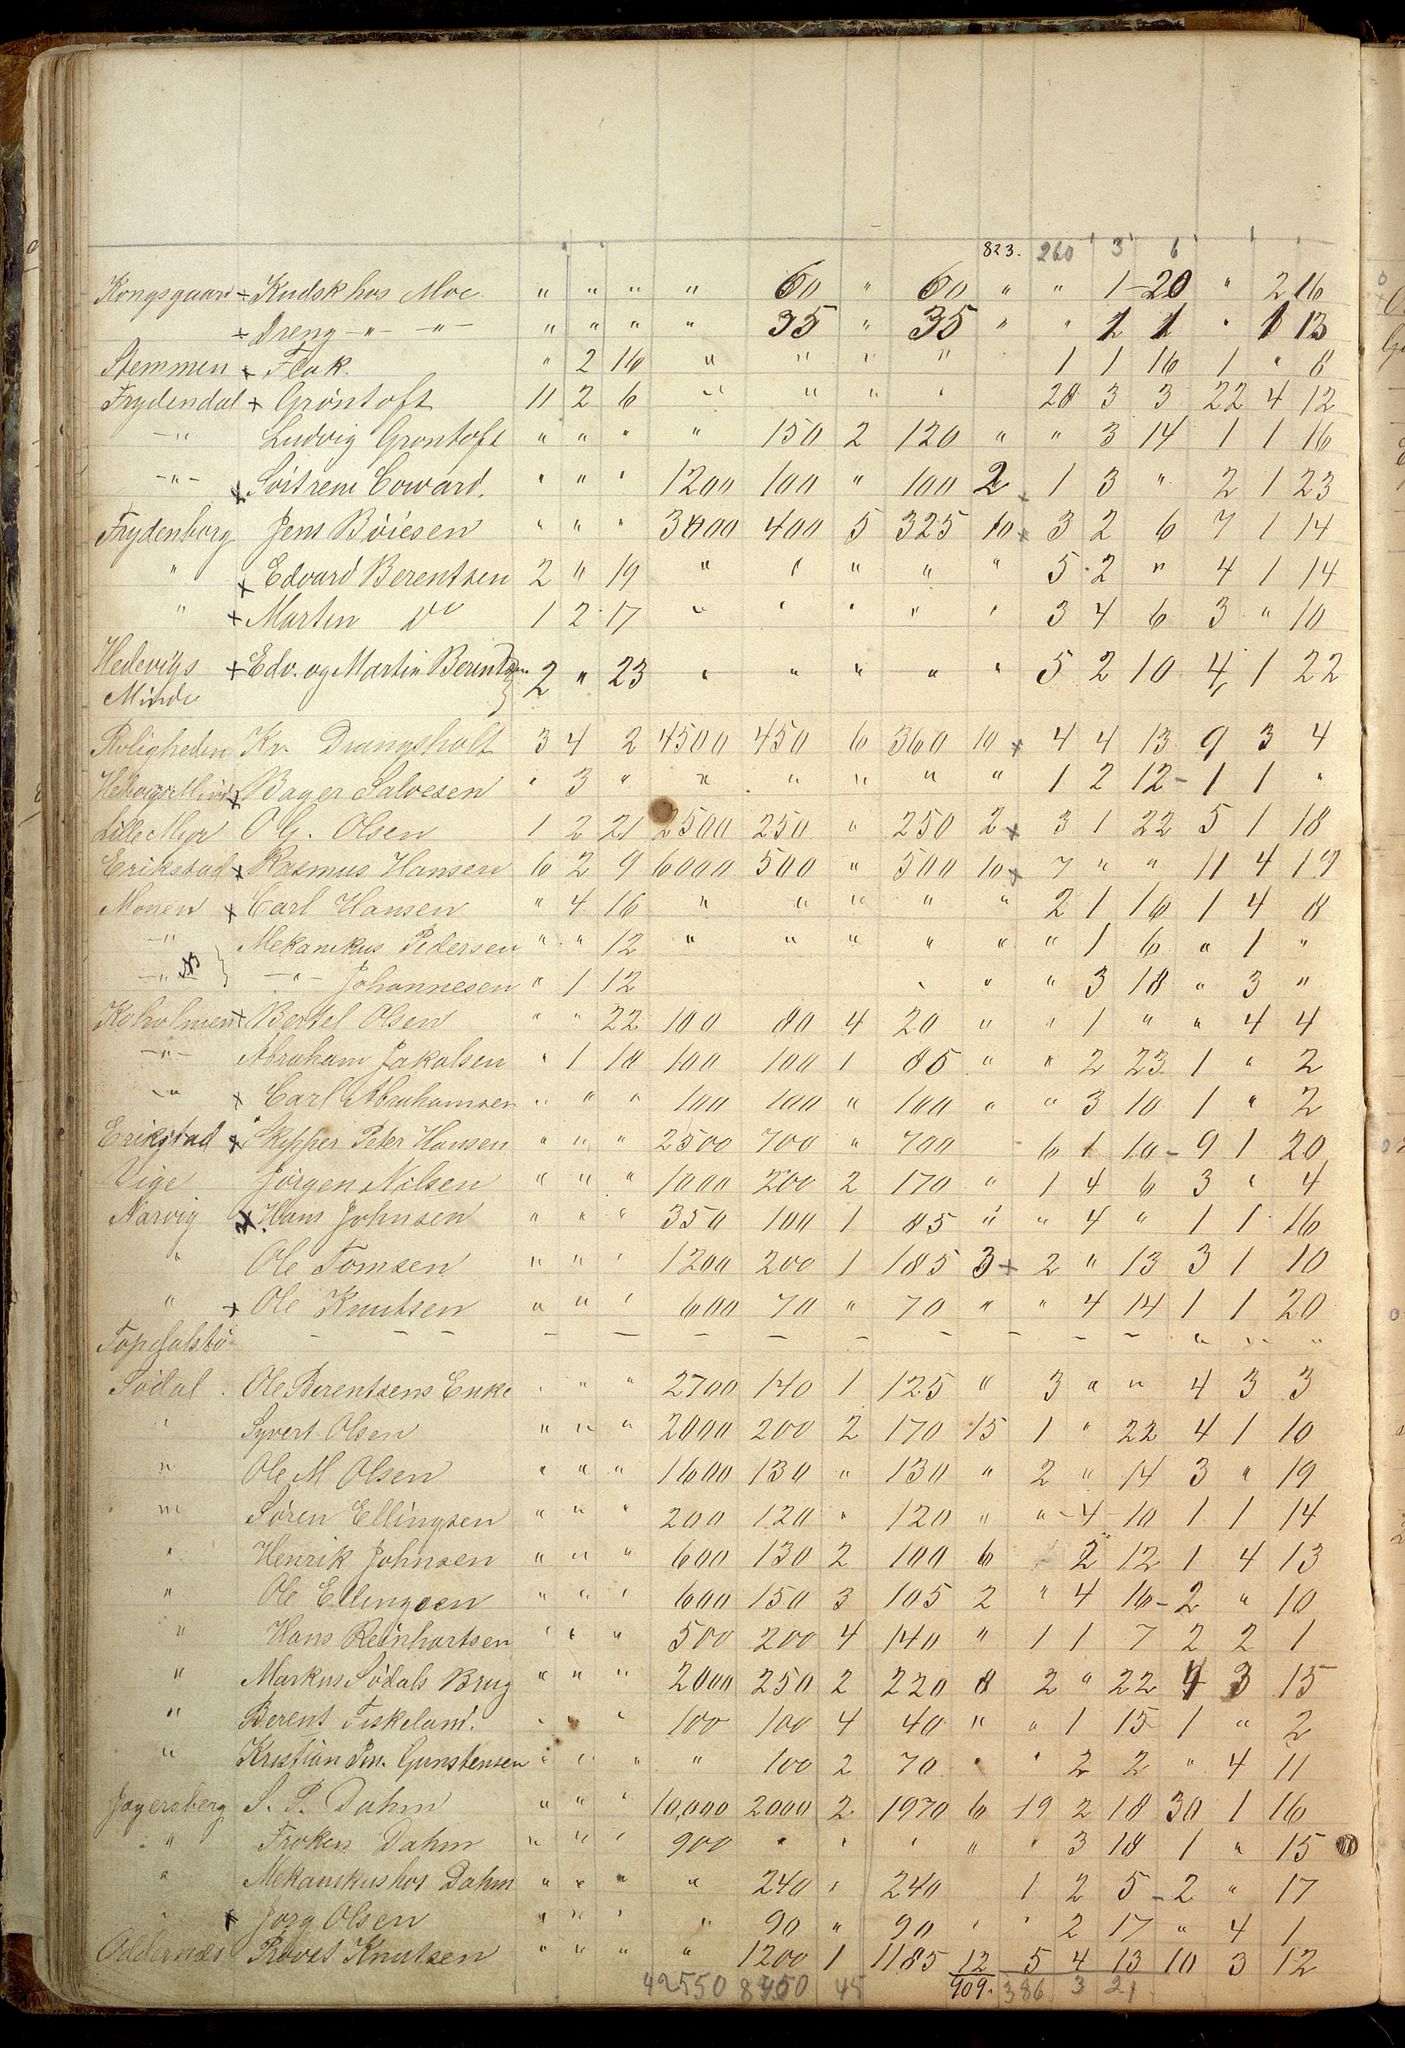 823. 260 3 6
Kongsgaard - Kudsk hos Moe " " " " 60 " 60 " " 1 - 20 " 2 16
+ Dreng -"- -"- " " " " 35 " 35 " " 1 1 " 1 13
Stemmen x Flak. " 2 16 " " " " 1 1 16 1 " 8
Frydendal + Grøntoft 11 2 6 " " " " 28 3 3 22 4 12
-"- Ludvig Grøntoft " " " " 150 2 120 " " 3 14 1 1 16
-"- x Coward. " " " 1200 100 " 100 2 1 3 " 2 1 23
Frydenborg Jens Bøiesen " " " 3000 400 5 325 10 x 3 2 6 7 1 14
" x Edvard Berentsen 2 " 19 " " " " " 5 2 " 4 1 14
" + Martin Do 1 2 17 " " " " " 3 4 6 3 " 10
Hedevigs + Edv. og Martin Berentsen } 2 " 23 " " " " " 5 2 10 4 1 22
Minde
Roligheden Kr. Drangsholt 3 4 2 4500 450 6 360 10 x 4 4 13 9 3 4
Hedevigs Minde x Bager Salvesen " 3 " " " " " " 1 2 12 - 1 1 "
Lille Myr O G. Olsen 1 2 21 2500 250 " 250 2 x 3 1 22 5 1 18
Erikstad x Rasmus Hansen 6 2 9 6000 500 " 500 10 x 7 " " 11 4 19
Monen x Carl Hansen " 4 16 " " " " " 2 1 16 1 4 8
-"- } Mekanikus Pedersen " " 12 " " " " " " 1 6 " 1 "
-"- -"- Johannesen " 1 12 " " " 3 18 " 3 "
Koholmen + Bertel Olsen " " 22 100 80 4 20 " " 1 " " 4 4
-"- Abraham Jakobsen " 1 18 100 100 1 85 " " 2 23 1 " 2
-"- x Carl Abrahamsen " " " 100 100 " 100 " " 3 10 1 " 2
Erikstad x Skipper Peter Hansen " " " 2500 700 " 700 6 1 10 - 9 1 20
Vige Jørgen Nilsen " " " 1000 200 2 170 " 1 4 6 3 " 4
Narvig x Hans Johnsen " " " 350 100 1 85 " " 4 " 1 1 16
" Ole Tomsen " " " 1200 200 1 185 3 + 2 " 13 3 1 10
" + Ole Knutsen " " " 600 70 " 70 " " 4 14 1 1 20
Topdalsbø - - - - - - - - - - - - - " " "
Sødal. Ole Berentsens Enke " " " 2700 140 1 125 " 3 " " 4 3 3
" Syvert Olsen " " " 2000 200 2 170 15 1 " 22 4 1 10
" Ole M Olsen " " " 1600 130 " 130 " 2 " 14 3 " 19
" Søren Ellingsen " " " 200 120 " 120 " " - 4 - 10 1 1 14
" Henrik Johnsen " " " 600 130 2 100 6 2 12 1 4 13
" Ole Ellingsen " " " 600 150 3 105 2 " 4 16 - 2 " 10
" Hans Reinhartsen " " " 500 200 4 140 " 1 1 7 2 2 1
" Markus Sødals Brug " " " 2000 250 2 220 8 2 " 22 4 3 15
" Berent Fiskeland. " " " 100 100 4 40 " " 1 15 1 " 2
" Kristian Gunstensen " " " " 100 2 70 " " 2 2 " 4 11
Jægersberg S. P. Dahm " " " 10,000 2000 2 1970 6 19 2 18 30 1 16
" Frøken Dahm " " " 900 " " " " " 3 18 1 " 15
" Mekanikus hos Dahm " " " " 240 " 240 1 2 5 - 2 " 17
" x Jørg Olsen " " " " 90 " 90 " " 2 17 " 4 1
Oddernæs Provst Knutsen " " " " 1200 1 1185 12 5 4 13 10 3 12
42550 8450 45 909. 386 3 21